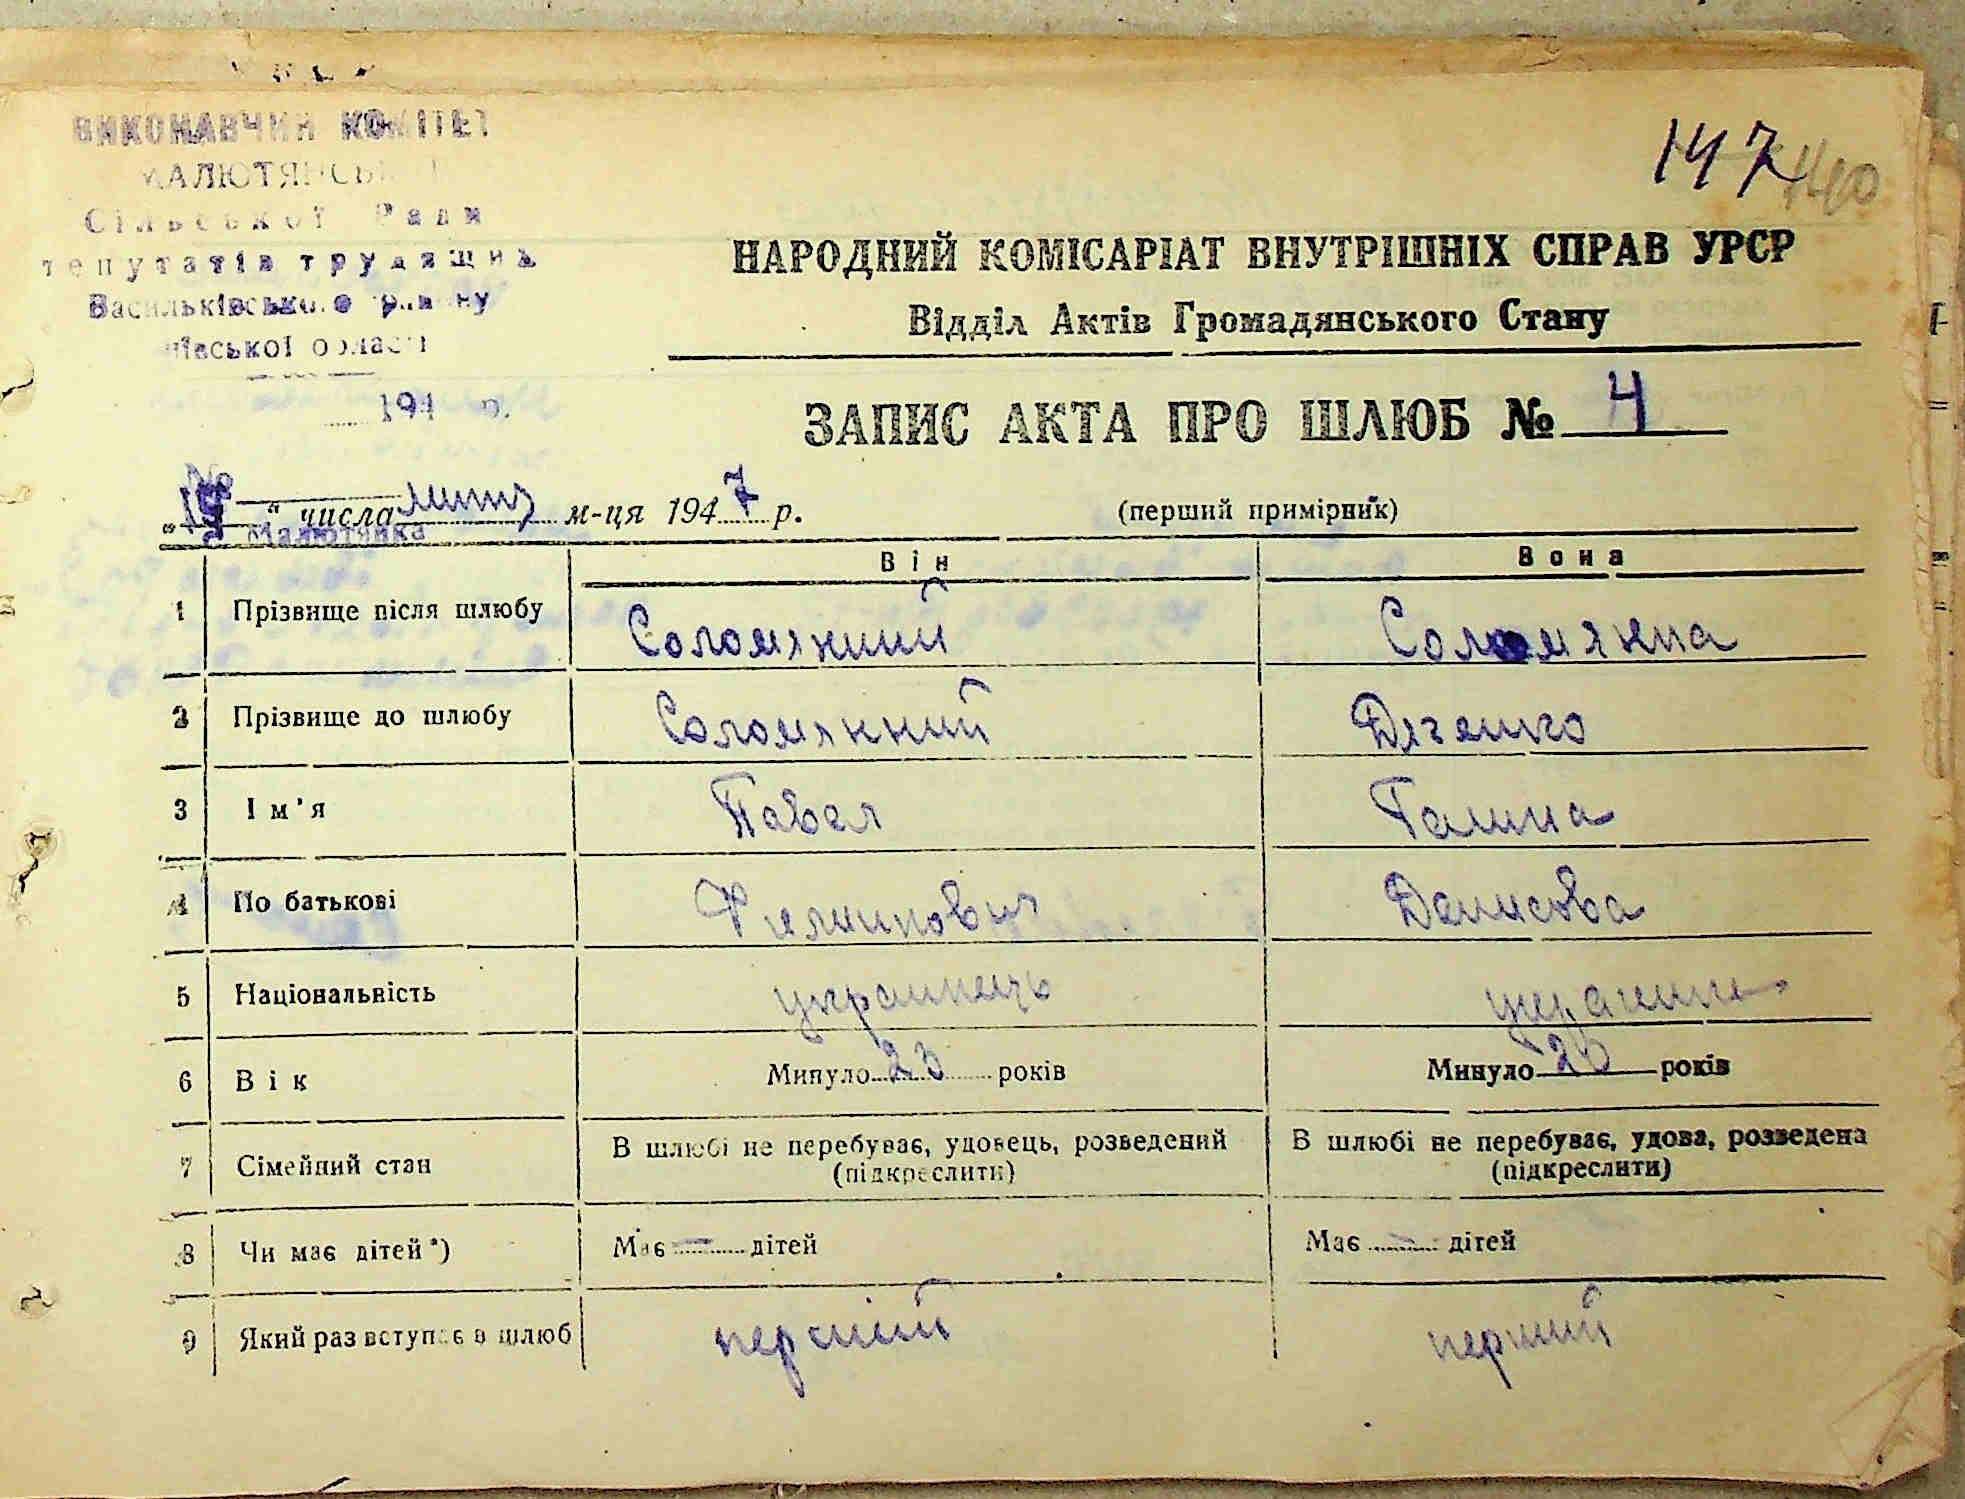 ВИКОНАВЧИЙ КОМІТЕТ
МАЛЮТЯНСЬК
Сільської Ради
депутатів трудящих
Васильківського району
ївської області
194 р.
147 140
НАРОДНИЙ КОМІСАРІАТ ВНУТРІШНІХ СПРАВ УРСР
Відділ Актів Громадянського Стану
ЗАПИС АКТА ПРО ШЛЮБ № 4
№
" числа м-ця 1947 р. (перший примірник)
Малютянка
Він Вона
1 Прізвище після шлюбу Соломякний Соломякна
2 Прізвище до шлюбу Соломякний Дяченко
3 Ім'я Павел Галина
4 По батькові Филипович Денисова
5 Національність украинець
6 Вік Минуло 23 років Минуло 20 років
7 Сімейний стан В шлюбі не перебуває, удовець, розведений (підкреслити) В шлюбі не перебуває, удова, розведена (підкреслити)
8 Чи має дітей*) Має — дітей Має — дітей
9 Який раз вступає в шлюб перший перший